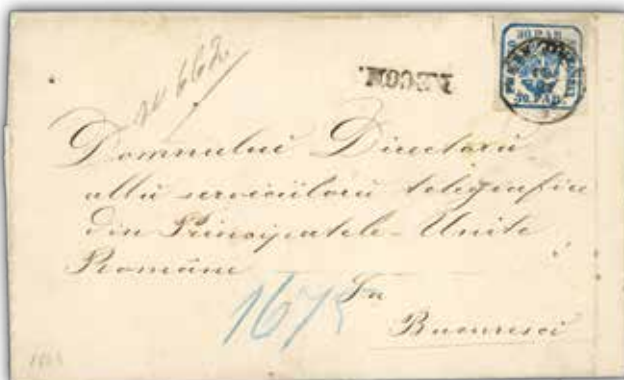 30 PAR
30 PAR
RECOM.
Domnului Directorŭ
allŭ serviciilorŭ telegrafice
din Principatele-Unite
Române
La
Bucuresci